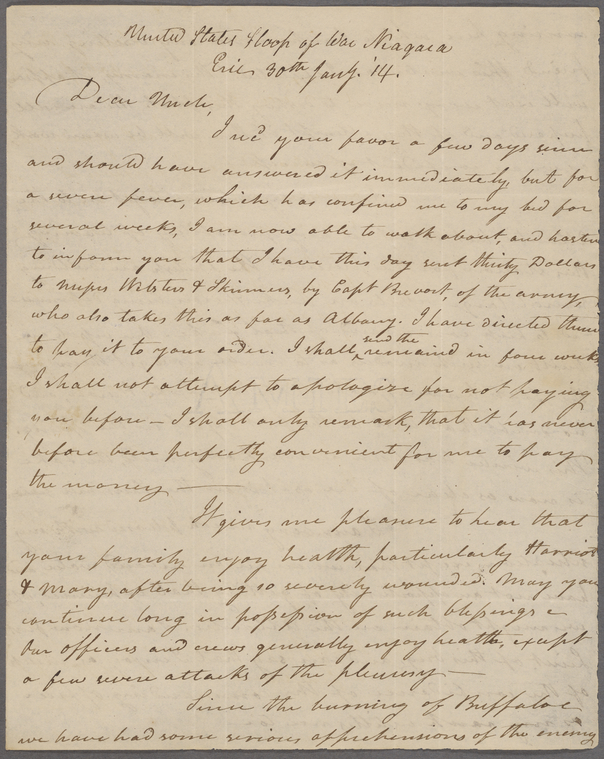 United States Sloop of War Niagara
Erie 30th Jany. '14.
Dear Uncle,
I recd your favor a few days since
and should have answered it immediately, but for
a severe fever, which has confined me to my bed for
several weeks, I am now able to walk about, and hasten
to inform you that I have this day sent thirty Dollars
to Messrs Websters & Skinners, by Capt Brevort, of the army,
who also takes this as far as Albany. I have directed them
to pay it to your order. I shall send the remaind in four weeks
I shall not attempt to apologize for not paying
you before — I shall only remark, that it has never
before been perfectly convenient for me to pay
the money —
It gives me pleasure to hear that
your family enjoy health, particularly Harriot
& Mary, after being so severely wounded. May you
continue long in possession of such blessings
Our officers and crews generally enjoy health, except
a few severe attacks of the pleurisy —
Since the burning of Buffaloe
we have had some serious apprehensions of the enemy